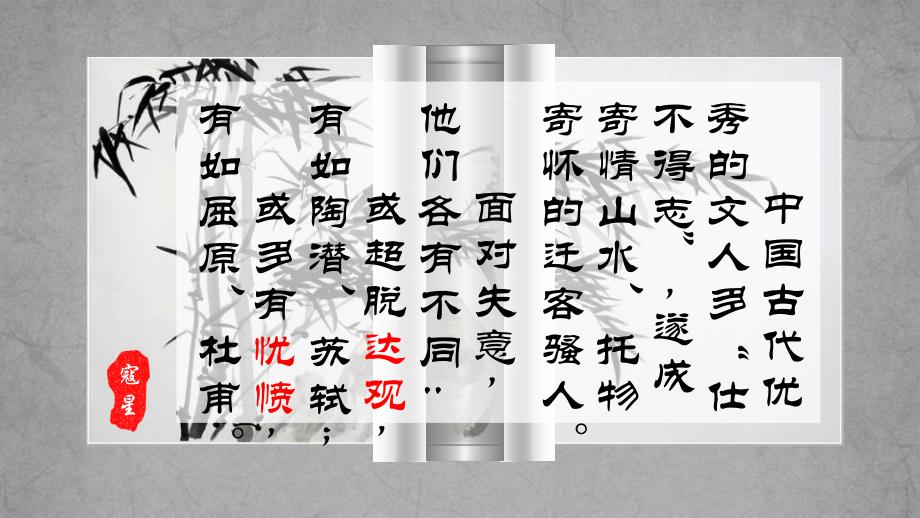 中国古代优
秀的文人多“仕
不得志”，遂成
寄情山水、托物
寄怀的迁客骚人。
面对失意，
他们各有不同：
或超脱达观，
有如陶潜、苏轼；
或多有忧愤，
有如屈原、杜甫。
寇星